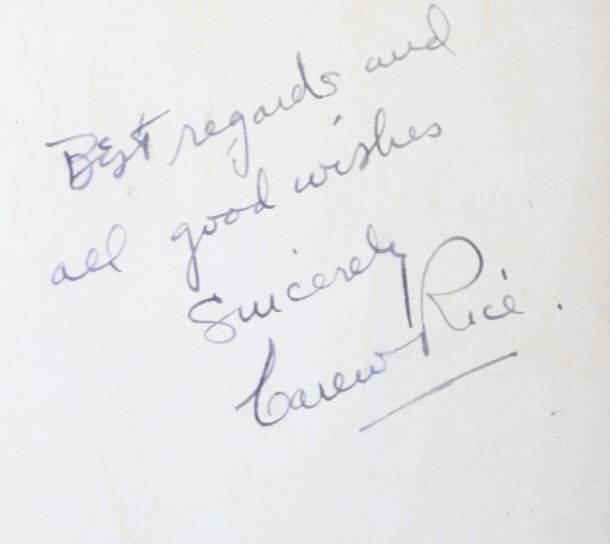 Best regards and
all good wishes
Sincerely
Carew Rice.